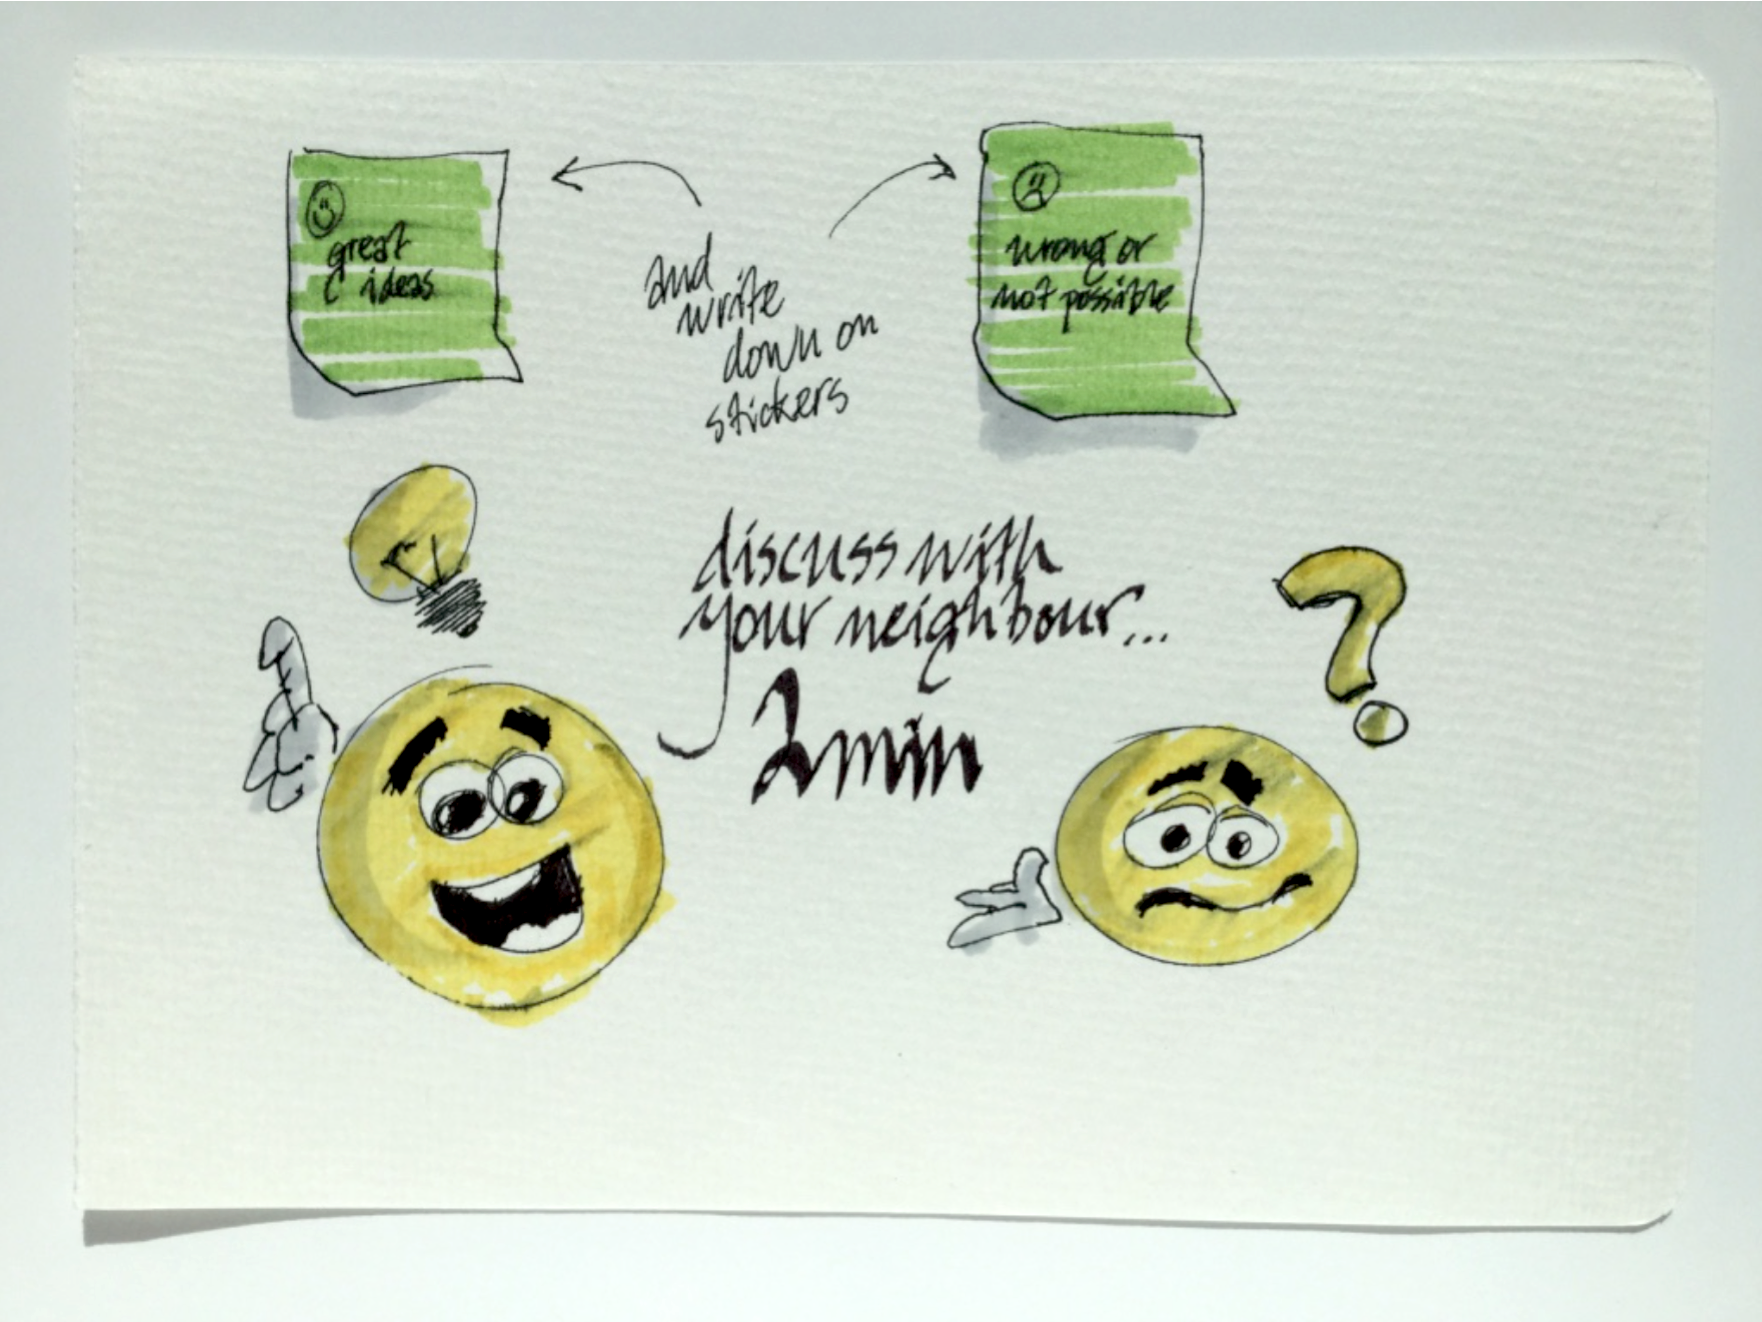 great
ideas
and
write
down on
stickers
wrong or
not possible
discuss with
your neighbour...
2min